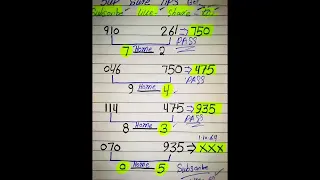 Subscribe Like Share
910 261⇒750
PASS
7 Home 2
046 750⇒475
PASS
9 Home 4
114 475⇒935
PASS
8 Home 3
070 935⇒XXX
0 Home 5
Subscribe